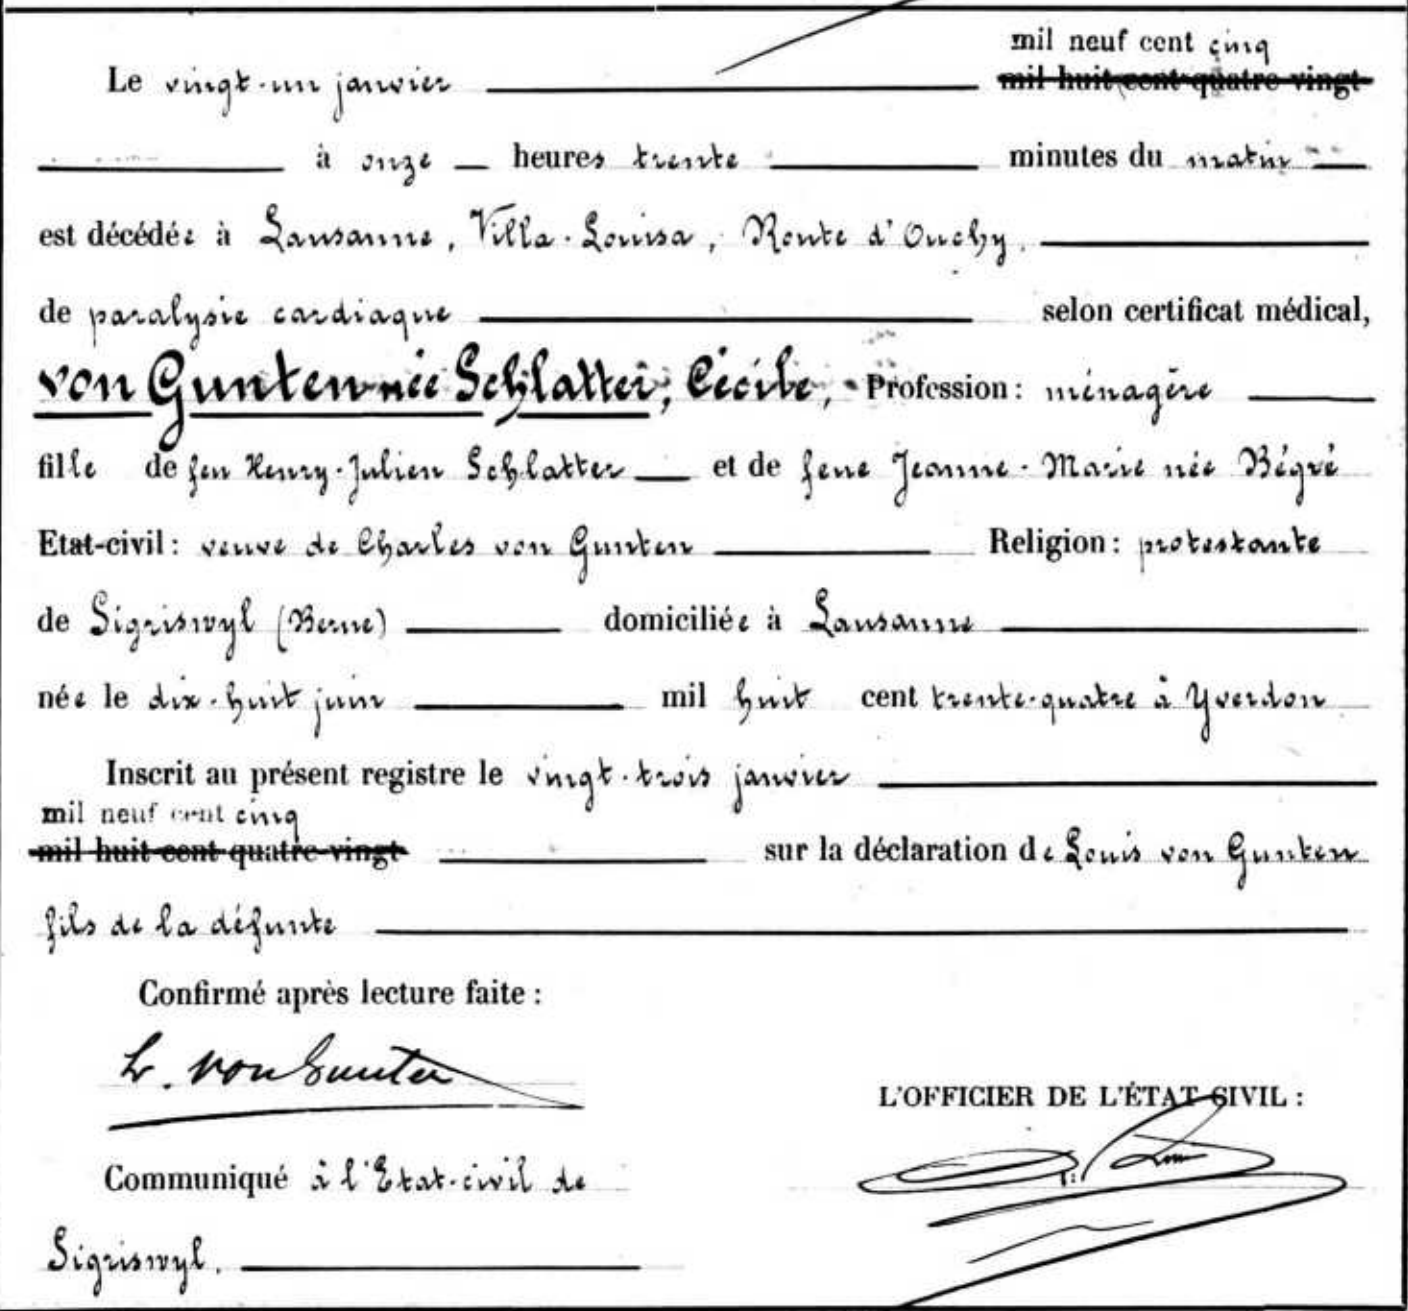 mil neuf cent cinq
Le vingt-un janvier mil huit cent quatre-vingt
à onze heures trente minutes du matin
est décédée à Lausanne, Villa-Louisa, Route d'Ouchy,
de paralysie cardiaque selon certificat médical,
von Gunten née Schlatter, Cécile, Profession: ménagère
fille de feu Henry-Julien Schlatter et de feue Jeanne-Marie née Bégré
Etat-civil: veuve de Charles von Gunten Religion: protestante
de Sigriswyl (Berne) domiciliée à Lausanne
née le dix-huit juin mil huit cent trente-quatre à Yverdon
Inscrit au présent registre le vingt-trois janvier
mil neuf cent cinq
mil huit cent quatre-vingt sur la déclaration de Louis von Gunten
fils de la défunte
Confirmé après lecture faite:
L. von Gunten
L'OFFICIER DE L'ÉTAT-CIVIL:
Communiqué à l'Etat-civil de
Sigriswyl.